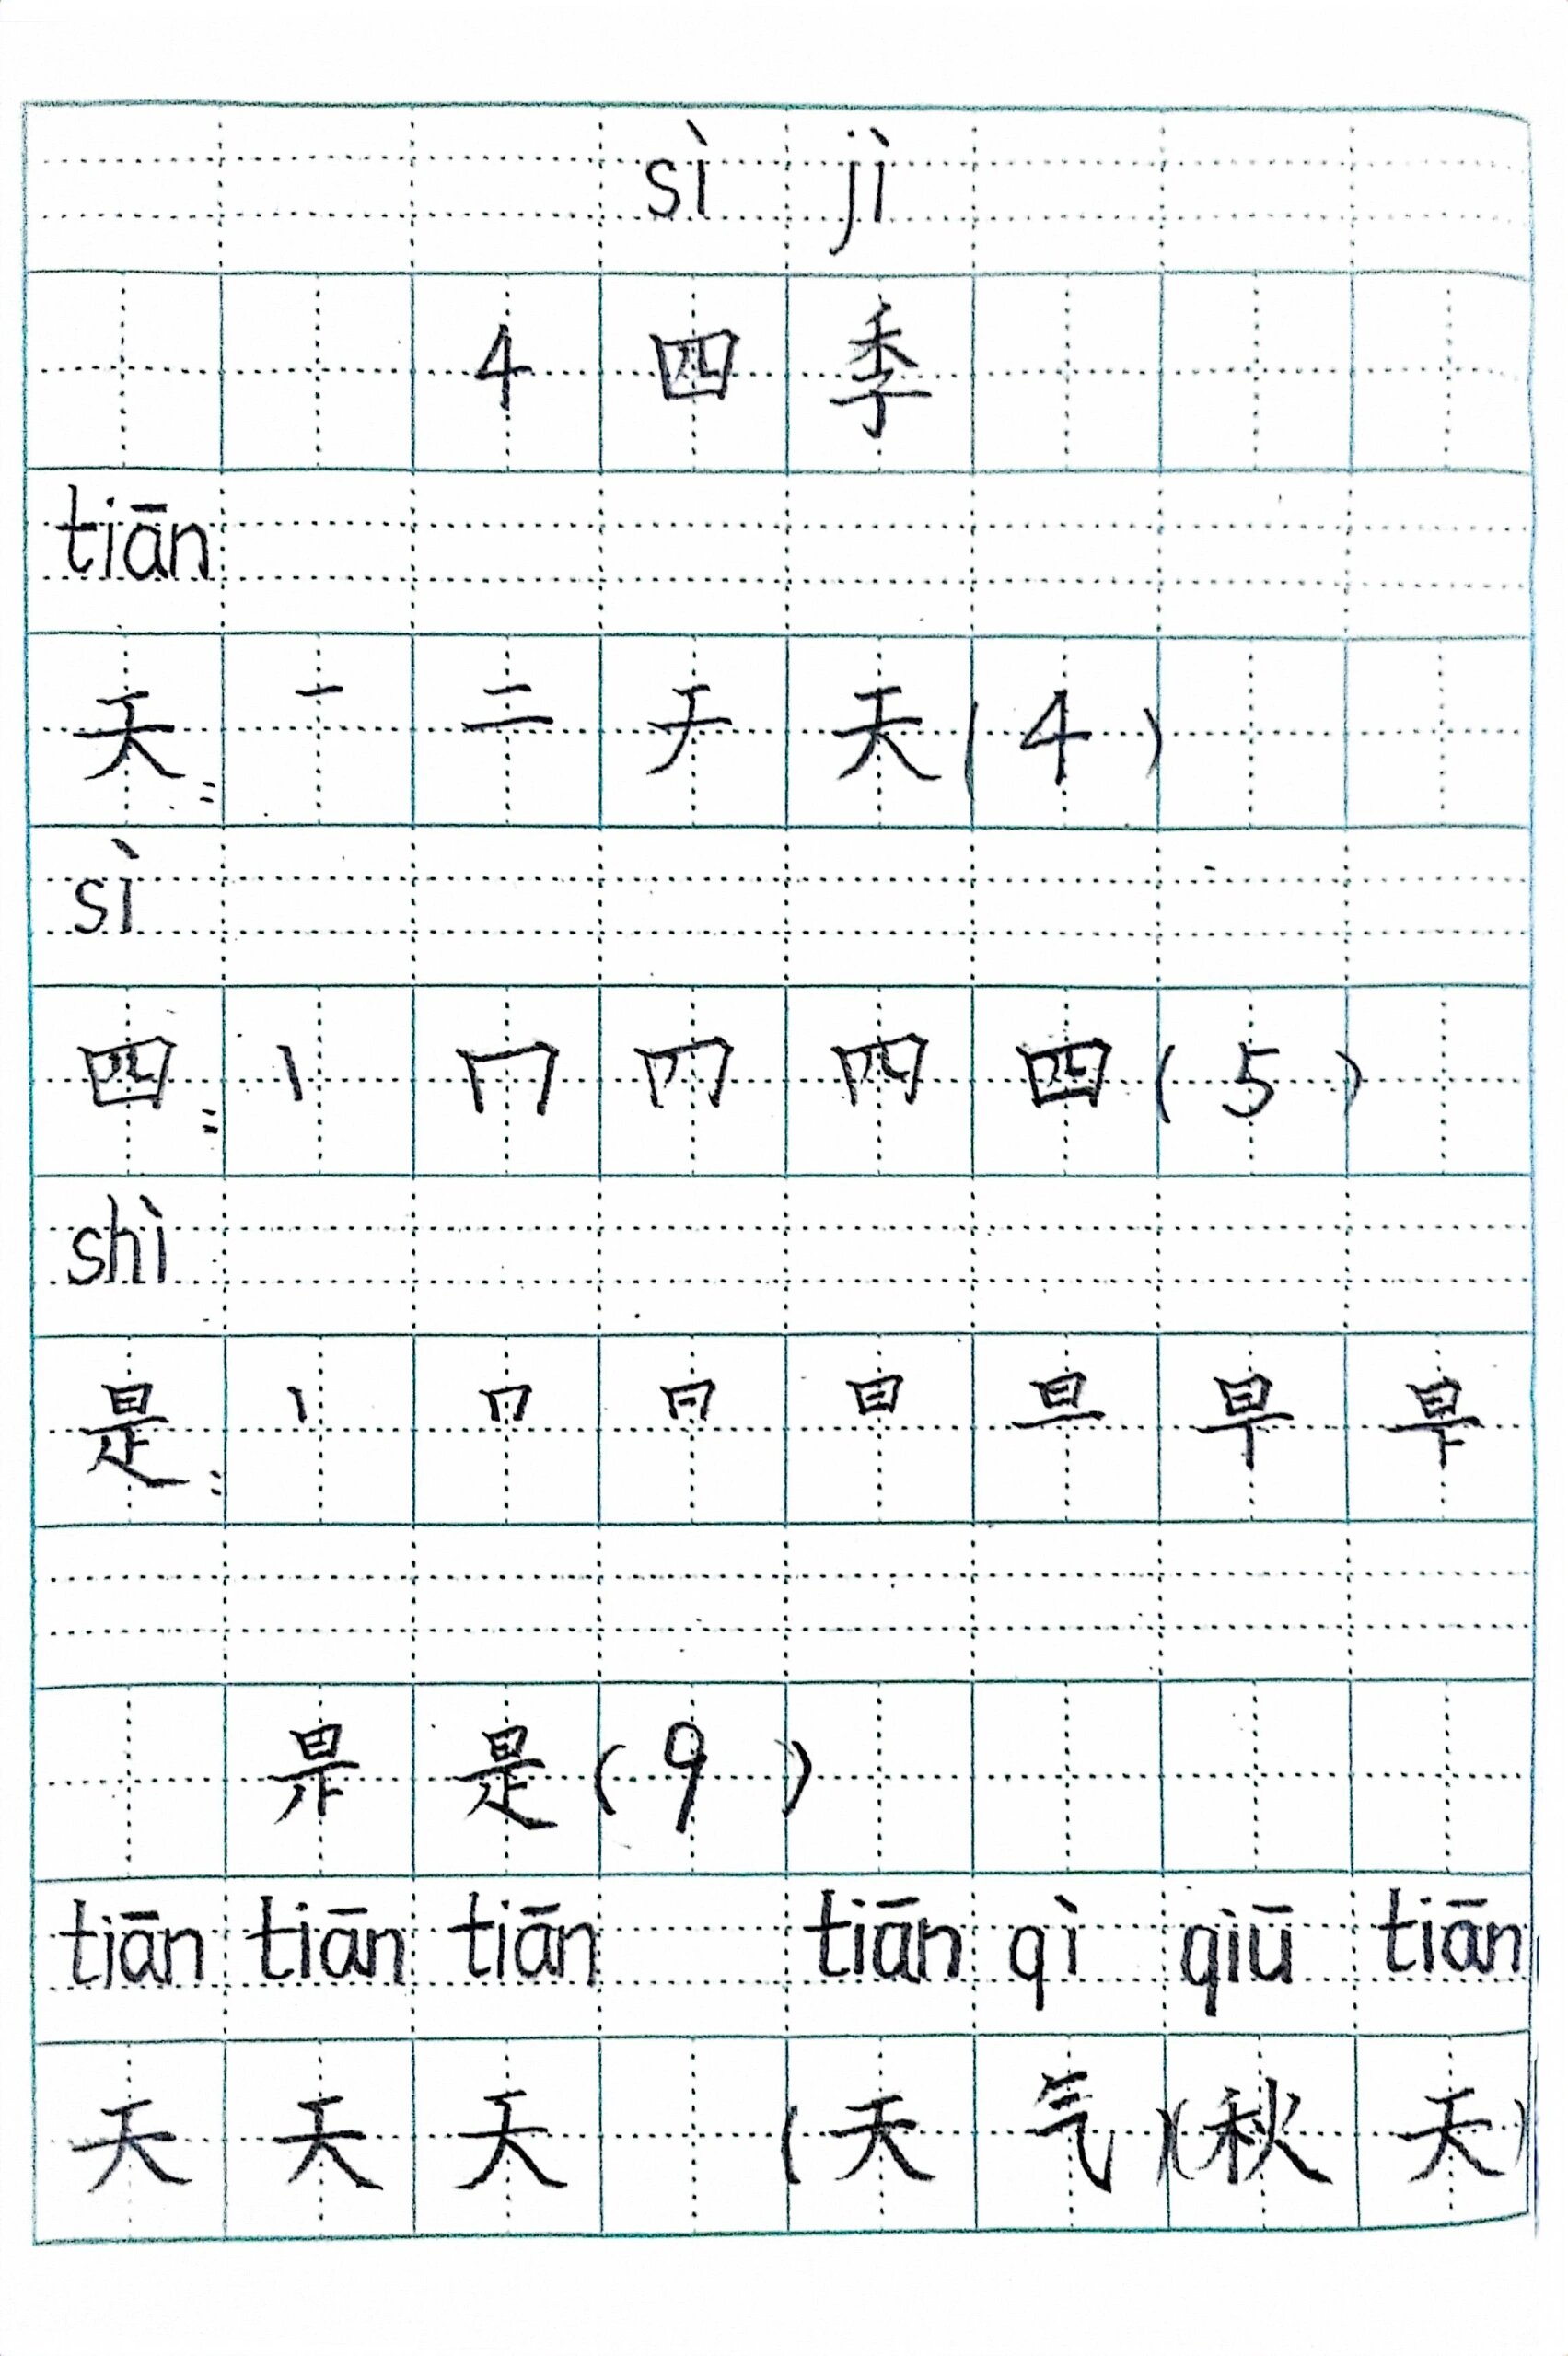 sì jì
4 四 季
tiān
天: 一 二 𠂇 天 (4)
sì
四: 丨 冂 四 (5)
shì
是: 丨 冂 日 旦 早
是 (9)
tiān tiān tiān tiān qì qiū tiān
天 天 天 (天 气)(秋 天)